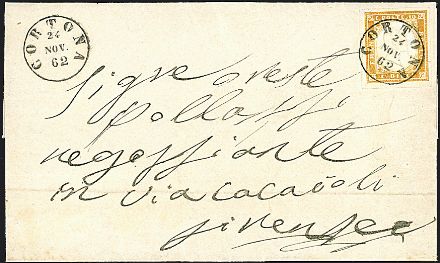 CORTONA
24
NOV.
62
CORTONA
24
NOV.
62
Sigre oreste
negoffiante
in via cacaioli
firenze